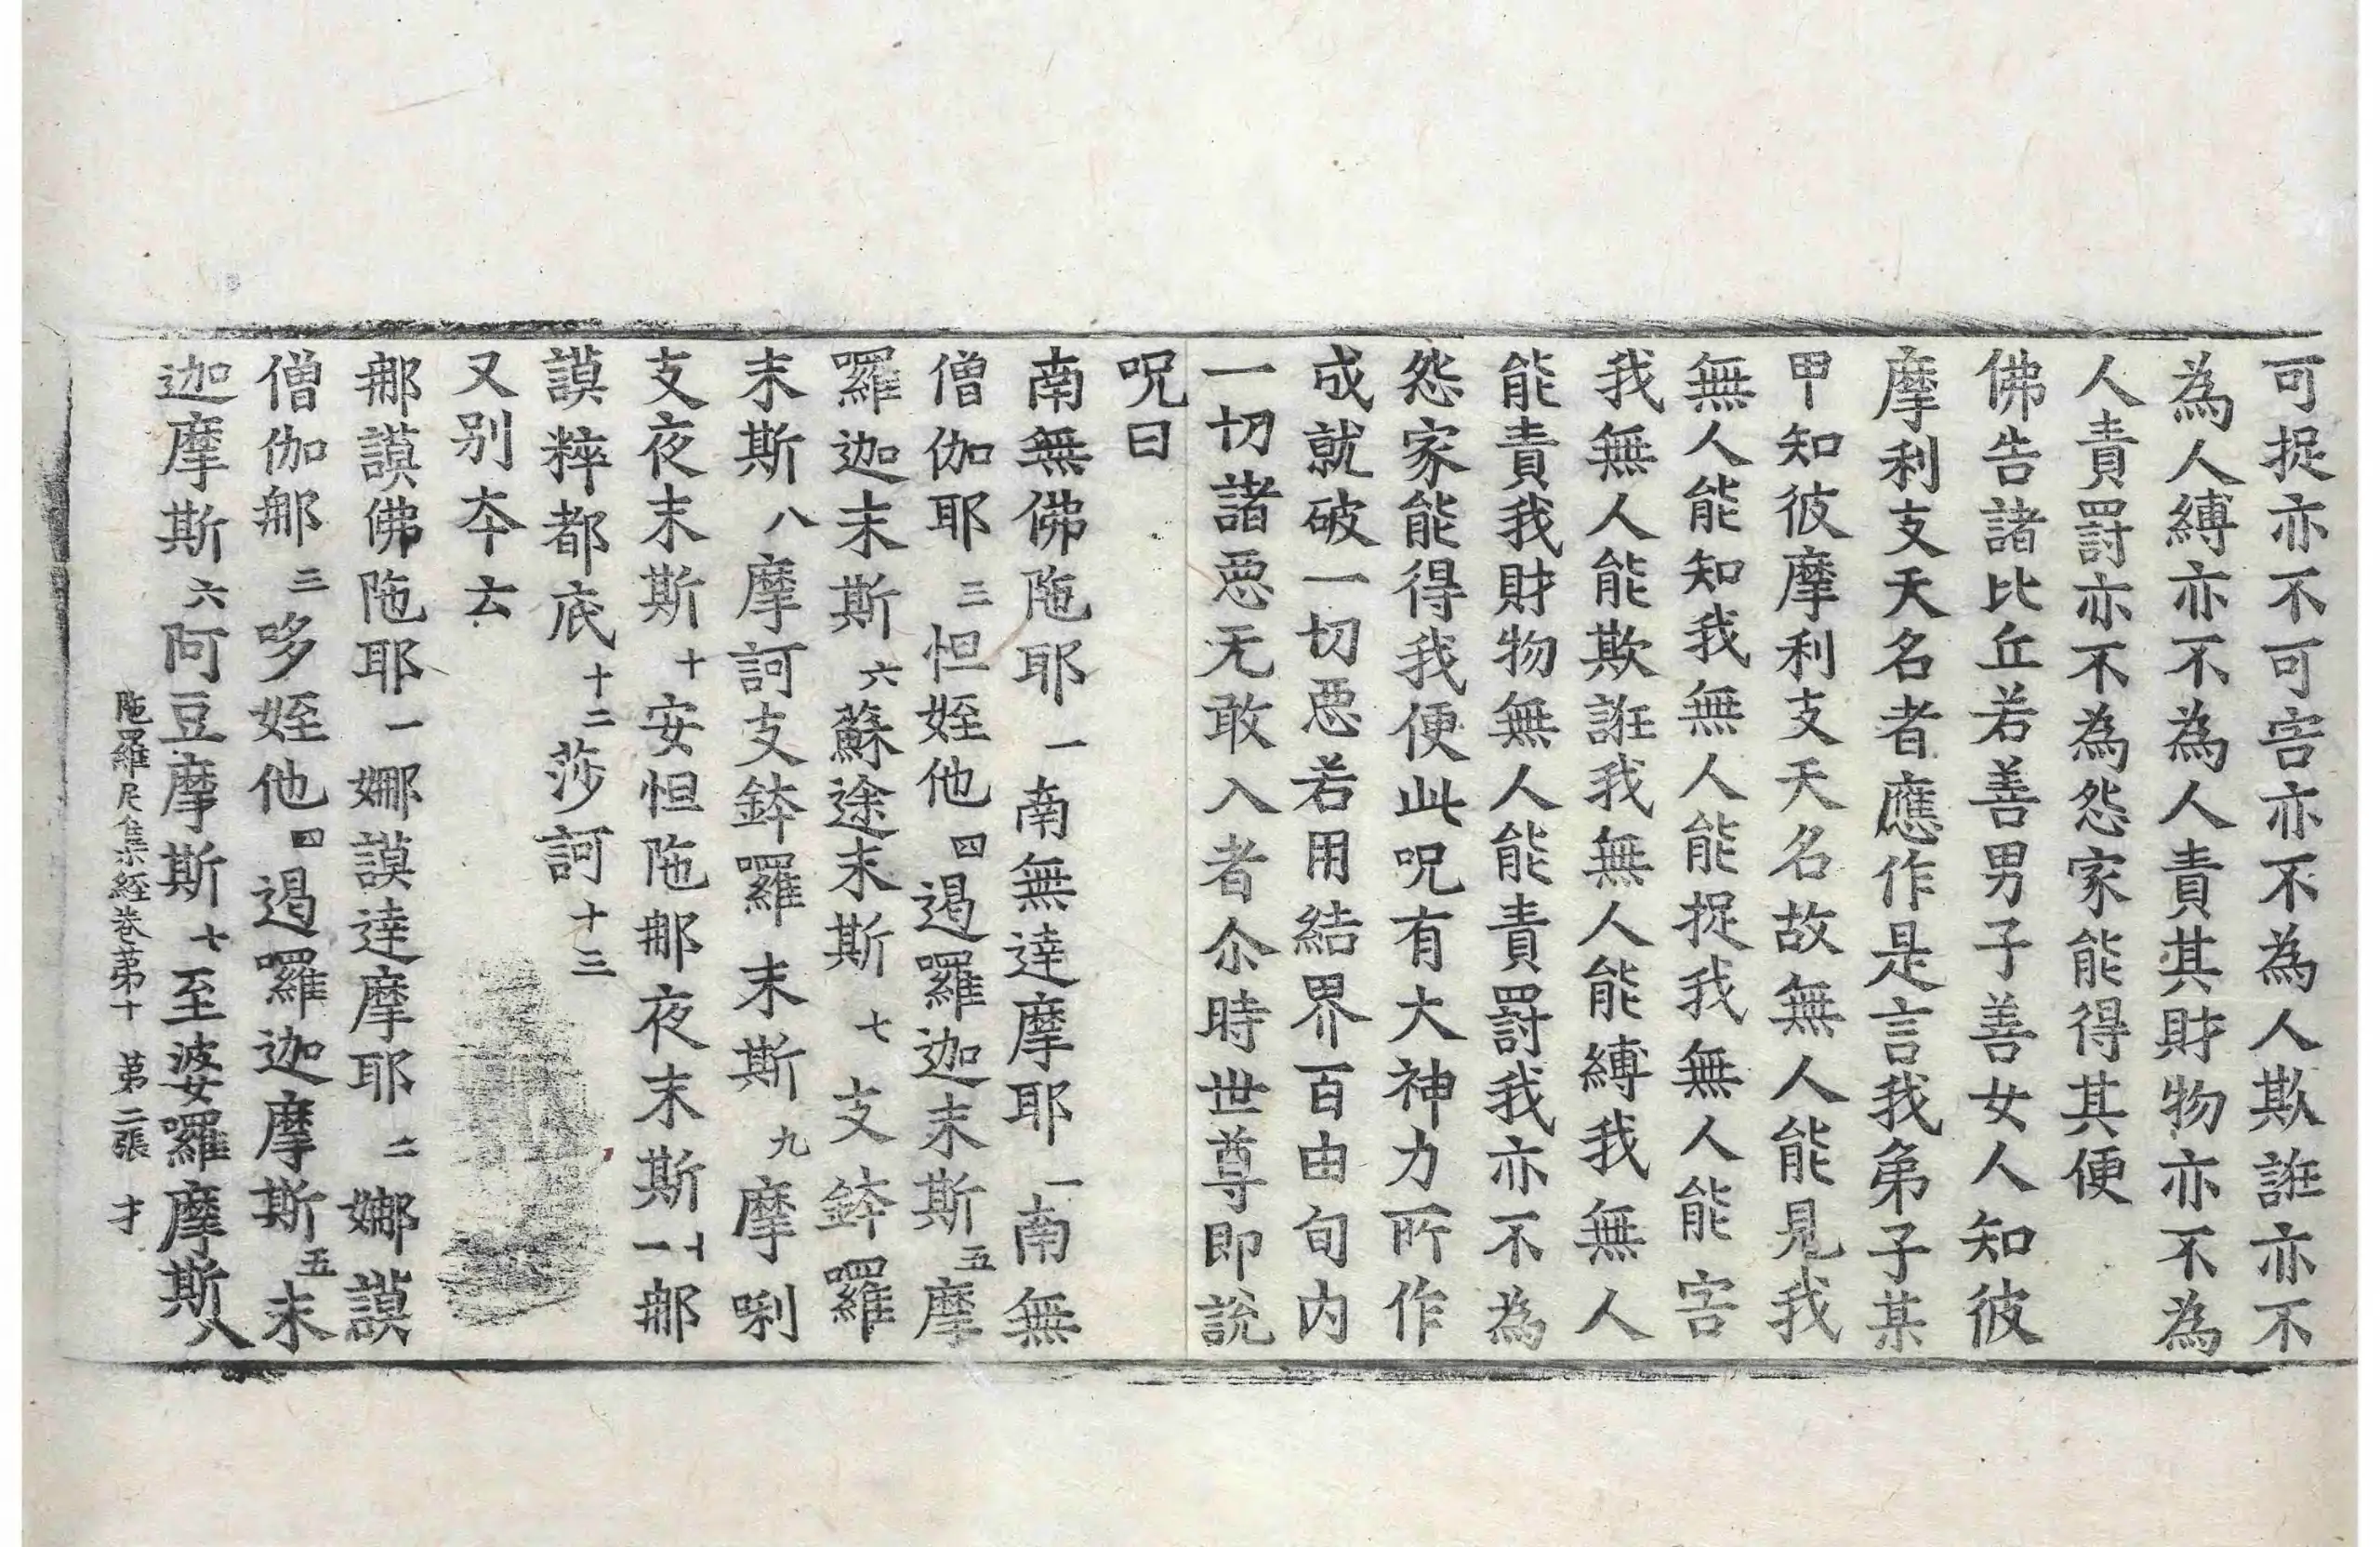 可捉亦不可害亦不為人欺誑亦不
為人縛亦不為人責其財物亦不為
人責罰亦不為怨家能得其便
佛告諸比丘若善男子善女人知彼
摩利支天名者應作是言我弟子某
甲知彼摩利支天名故無人能見我
無人能知我無人能捉我無人能害
我無人能欺誑我無人能縛我無人
能責我財物無人能責罰我亦不為
怨家能得我便此呪有大神力所作
成就破一切惡若用結界百由旬內
一切諸惡无敢入者尒時世尊即說
呪曰
南無佛陁耶一南無達摩耶二南無
僧伽耶三怛姪他四遏囉迦末斯五摩
囉迦末斯六蘇途末斯七支鉢囉
末斯八摩訶支鉢囉末斯九摩唎
支夜末斯十安怛陁那夜末斯十一那
謨粹都底十二莎訶十三
又別夲云
那謨佛陁耶一娜謨達摩耶二娜謨
僧伽那三哆姪他四遏囉迦摩斯五末
迦摩斯六阿豆摩斯七至婆囉摩斯八
陁羅尼集經卷第十 第二張 才